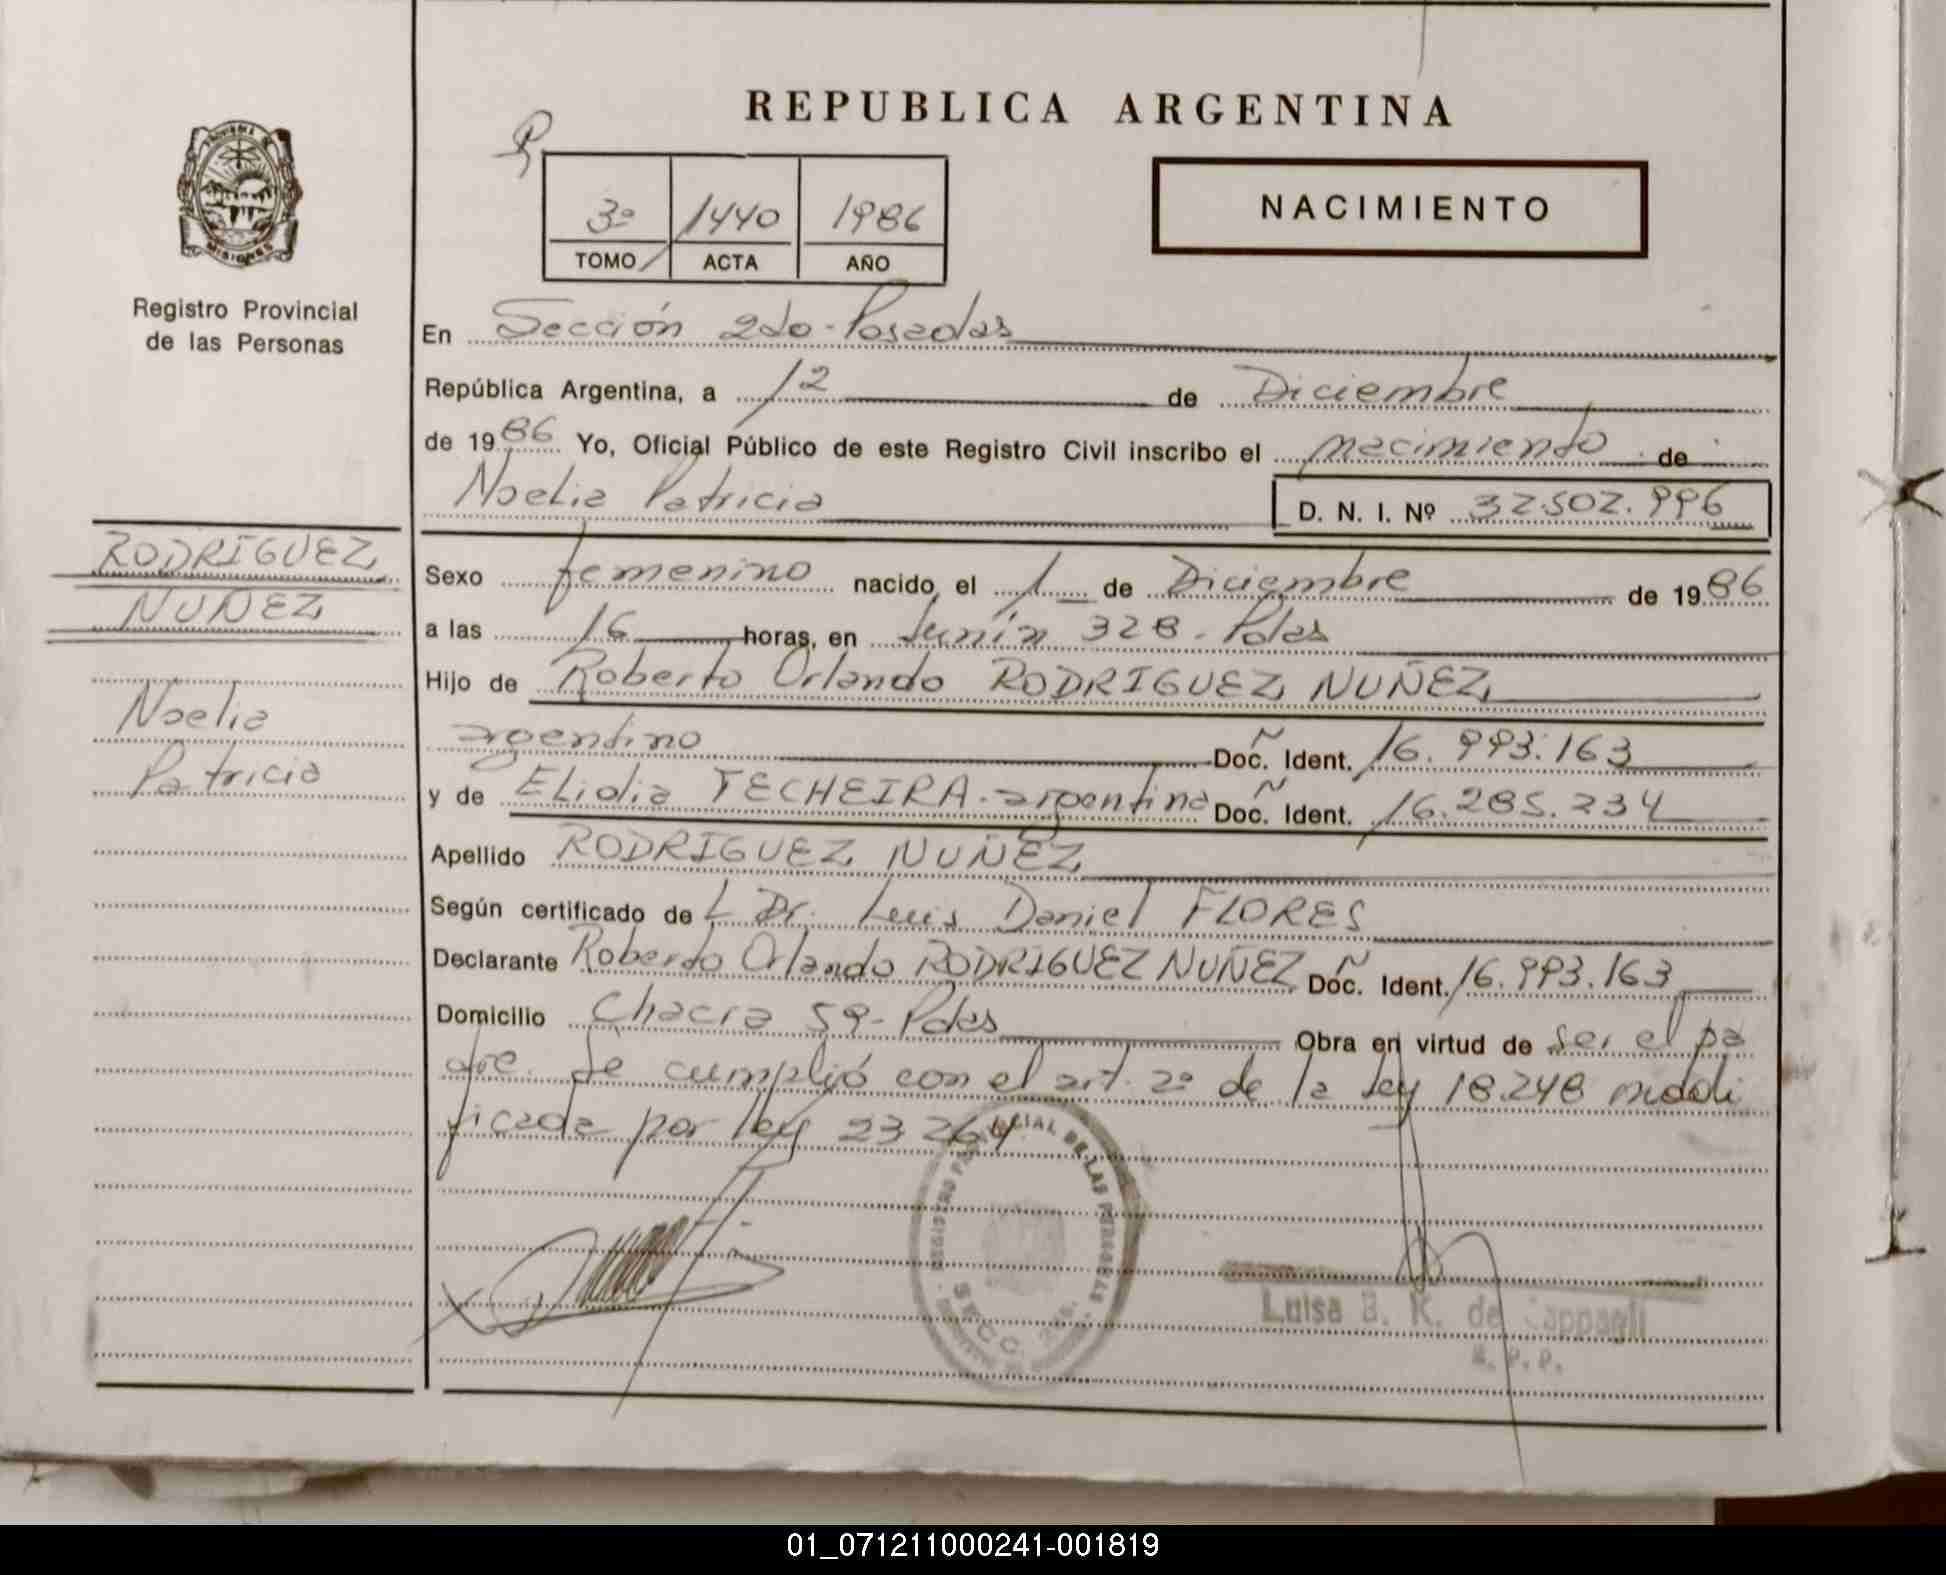 REPUBLICA ARGENTINA
NACIMIENTO
3º 1440 1986
TOMO ACTA AÑO
MISIONES
Registro Provincial
de las Personas
En Sección 2do-Posadas
República Argentina, a 12 de Diciembre
de 1986 Yo, Oficial Público de este Registro Civil inscribo el nacimiento de
Noelia Patricia D. N. I. Nº 32.502.996
RODRIGUEZ
NUÑEZ
Noelia
Patricia
Sexo femenino nacido el 1 de Diciembre de 1986
a las 16 horas, en Junín 328-Pdas
Hijo de Roberto Orlando RODRIGUEZ NUÑEZ
argentino Doc. Ident. 16.993.163
y de Elidia TECHEIRA-argentina Doc. Ident. 16.285.234
Apellido RODRIGUEZ NUÑEZ
Según certificado de L Dr. Luis Daniel FLORES
Declarante Roberto Orlando RODRIGUEZ NUÑEZ Doc. Ident. 16.993.163
Domicilio Chacra 59-Pdas Obra en virtud de ser el pa
dre. Se cumplió con el art. 2º de la Ley 18.248 modi
ficada por ley 23264
REGISTRO PROVINCIAL DE LAS PERSONAS
SECC.
Luisa B. K. de Cappagli
01_071211000241-001819